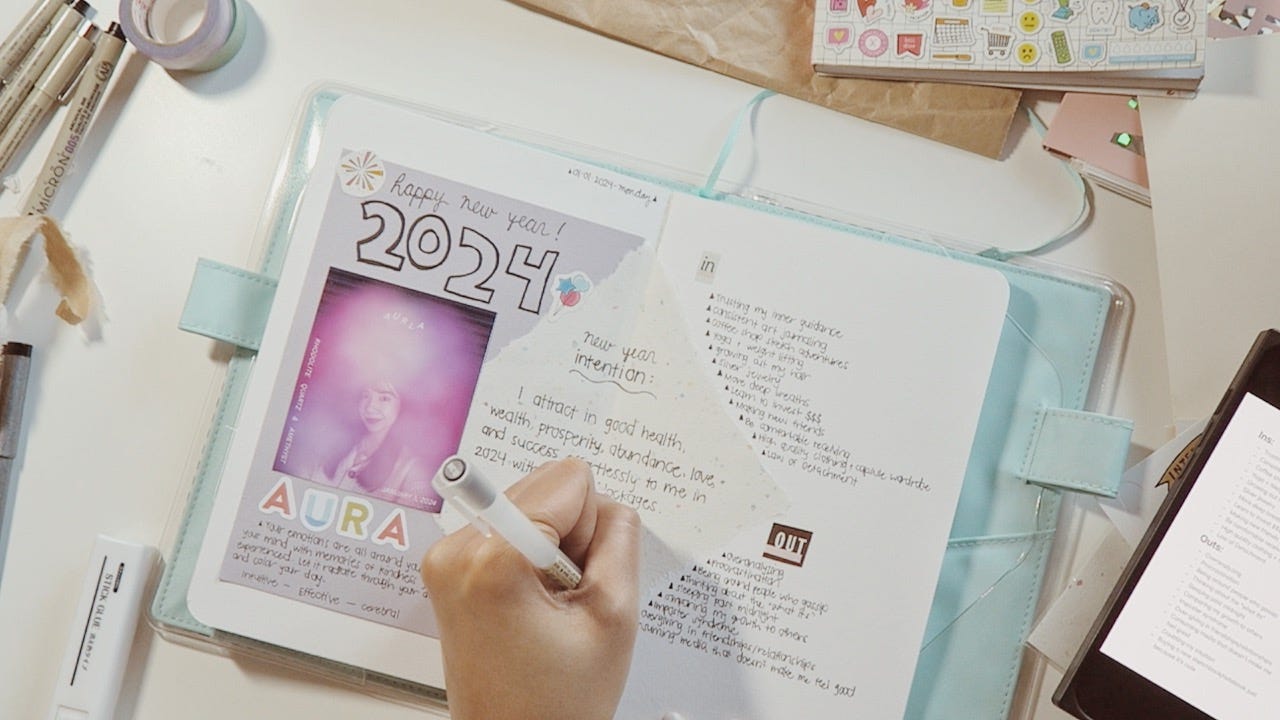 MICRON 005
01·01·2024·monday
happy new year!
2024
AURLA
RHODOLITE QUARTZ & AMETHYST
JANUARY 1, 2024
AURA
Your emotions are all around you
your mind with memories of kindness
experienced. Let it radiate through your
and color your day.
Intuitive — 
Effective — cerebral
new year
intention:
I attract in good health,
wealth, prosperity, abundance, love
and success effortlessly to me in
2024 with blockages.
in
Trusting my inner guidance
consistent art journaling
coffee shop sketch adventures
Yoga + weight lifting
growing out my hair
silver jewelry
Move deep breaths
Learn to invest $$$
Making new friends
Be comfortable receiving
High quality clothing + capsule wardrobe
Law of Detachment
OUT
overanalyzing
procrastination
Being around people who gossip
Thinking about the "what ifs"
sleeping past midnight
comparing my growth to others
imposter syndrome
overgiving in friendships/relationships
suming media that doesn't make me feel good
STICK GLUE
Ins:
Outs: